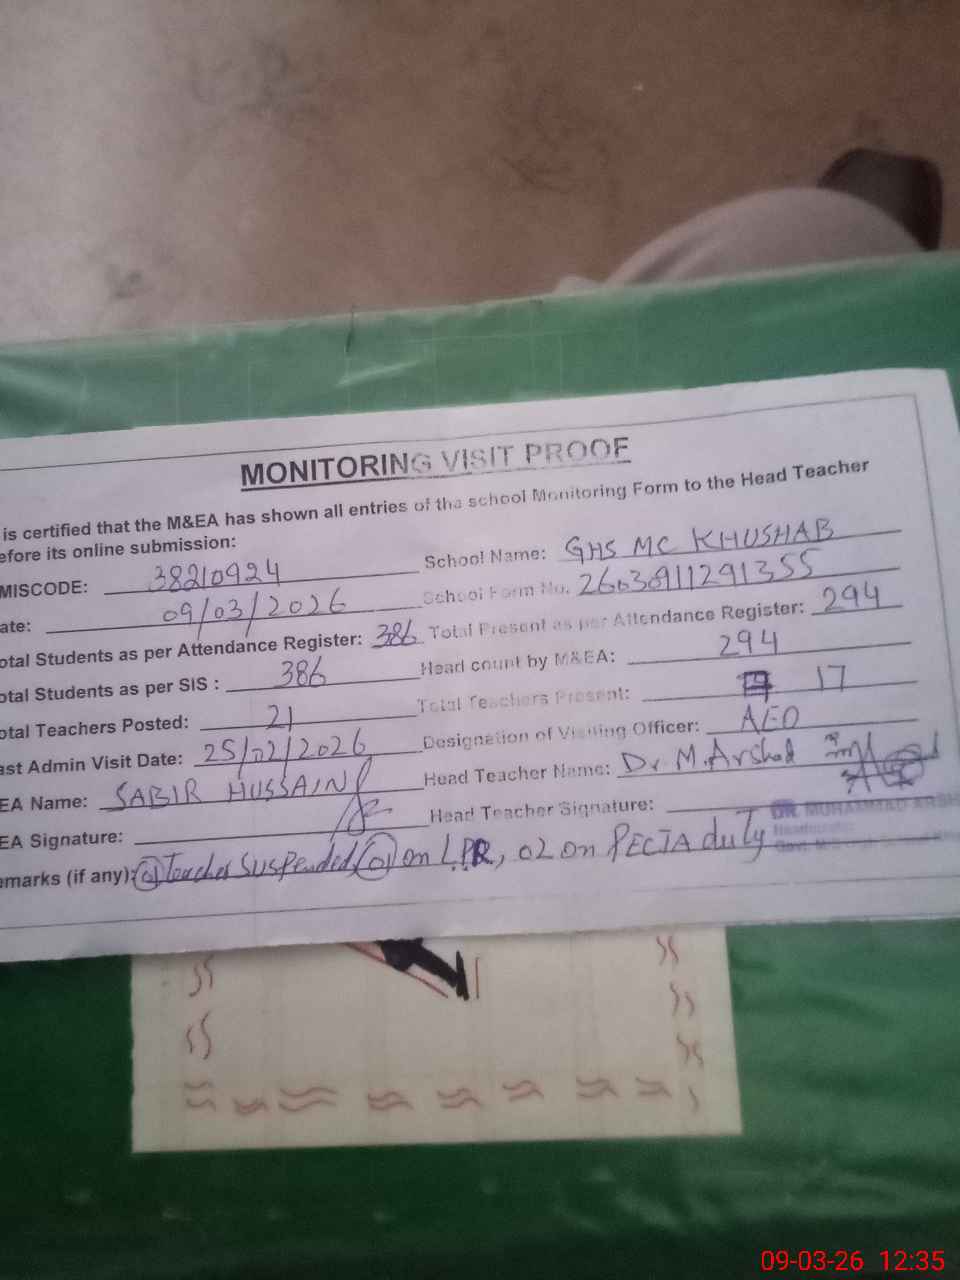 MONITORING VISIT PROOF
is certified that the M&EA has shown all entries of the school Monitoring Form to the Head Teacher
efore its online submission:
MISCODE: 38210924 School Name: GHS MC KHUSHAB
ate: 09/03/2026 School Form No. 26030911291355
otal Students as per Attendance Register: 386 Total Present as per Attendance Register: 294
otal Students as per SIS : 386 Head count by M&EA: 294
otal Teachers Posted: 21 Total Teachers Present: 17
ast Admin Visit Date: 25/02/2026 Designation of Visiting Officer: AEO
EA Name: SABIR HUSSAIN Head Teacher Name: Dr M. Arshad
EA Signature: Head Teacher Signature:
DR. MUHAMMAD ARSH
emarks (if any): 01 Teacher Suspended, 01 on LPR, 02 on PECTA duty
09-03-26 12:35